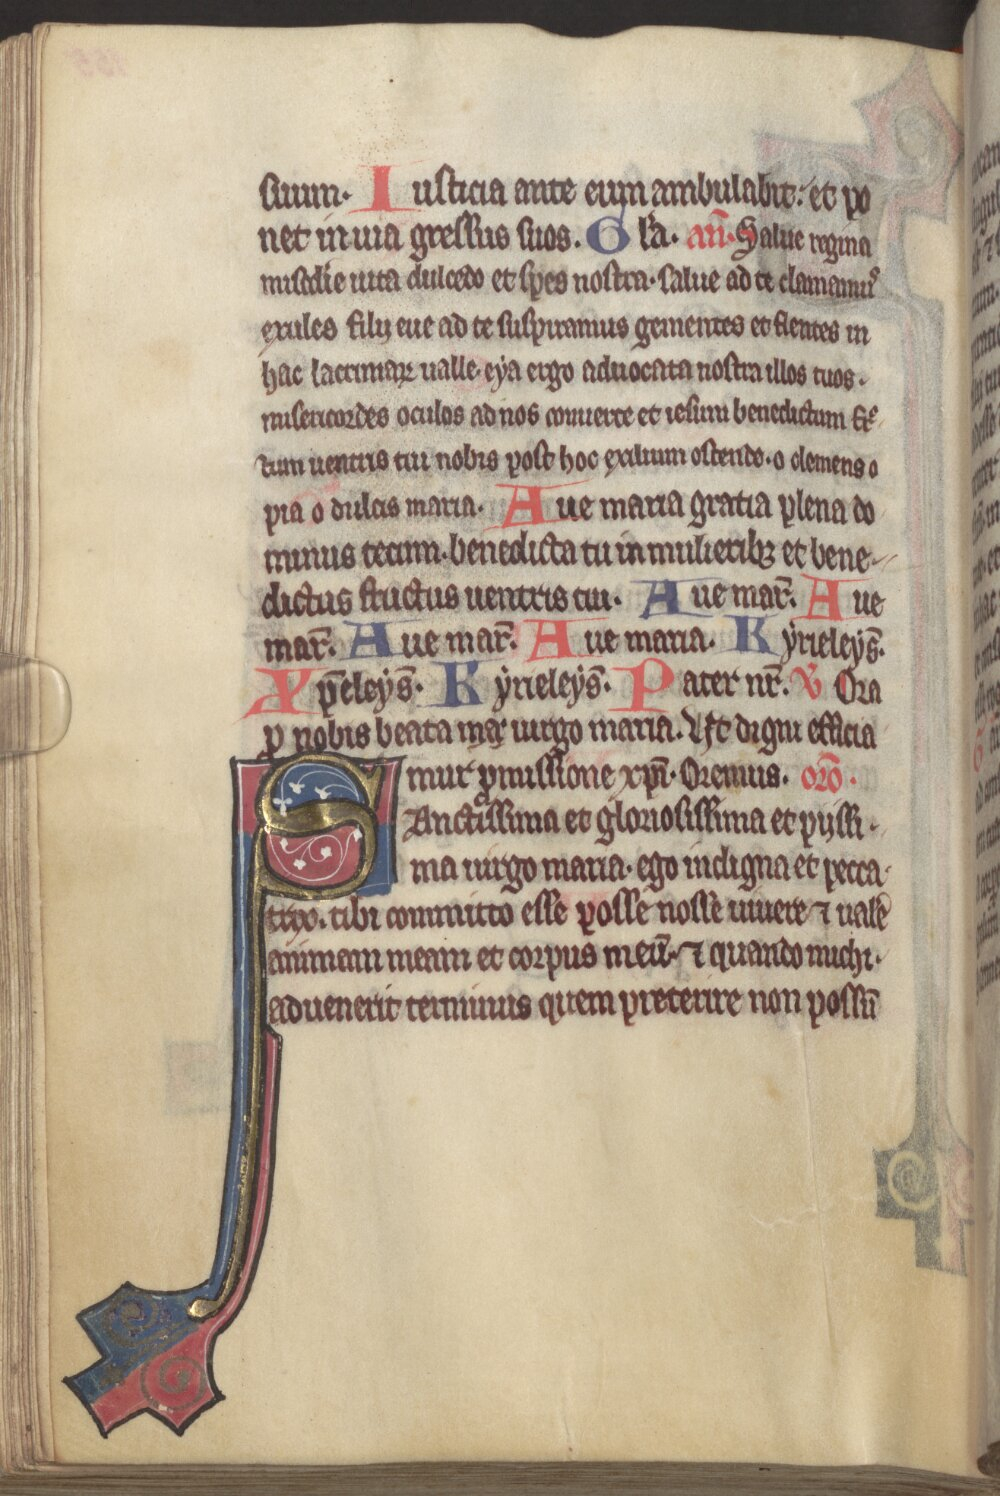 suum. Iusticia ante eum ambulabit: et po
net in uia gressus suos. Gl'a. an̄. Salue regina
misc̄die uita dulcedo et spes nostra. salue ad te clamamus
exules filij eue ad te suspiramus gementes et flentes in
hac lacrimaꝝ ualle. eya ergo aduocata nostra illos tuos.
misericordes oculos ad nos conuerte et iesum benedictum fruc
tum uentris tui nobis post hoc exilium ostende. o clemens o
pia o dulcis maria. Aue maria gratia plena do
minus tecum. benedicta tu in mulieribꝫ et bene
dictus fructus uentris tui. Aue mar̄. Aue
mar̄. Aue mar̄. Aue maria. Kyrieleys̄.
Xp̄eleys̄. Kyrieleys̄. Pater nr̄. ℣ Ora
ꝓ nobis beata uirgo maria. Ut digni efficia
mur ꝓmissione xp̄i. Oremus. orō.
Sanctissima et gloriosissima et pijssi
ma uirgo maria. ego indigna et pecca
trix. tibi committo esse posse nosse uiuere ⁊ uale
animam meam et corpus meū. ⁊ quando michi.
aduenerit terminus quem preterire non possū